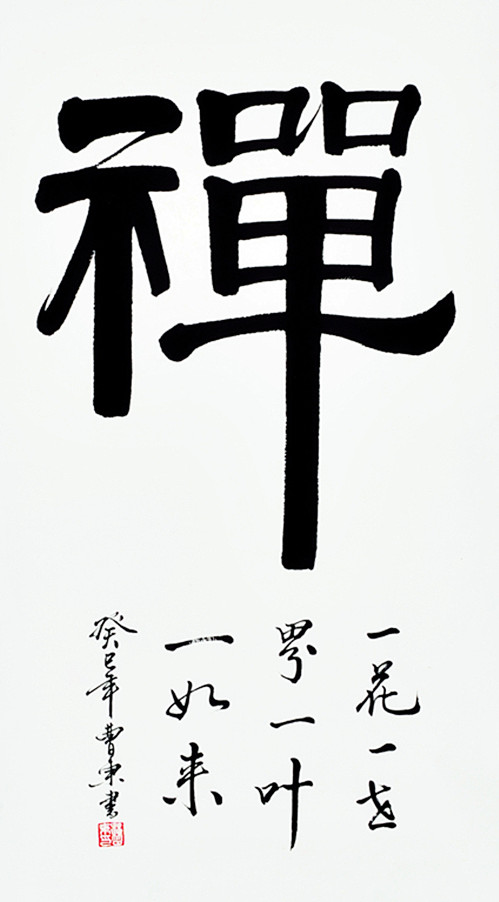 禪
一花一世
界一叶
一如来
癸巳年曹東書